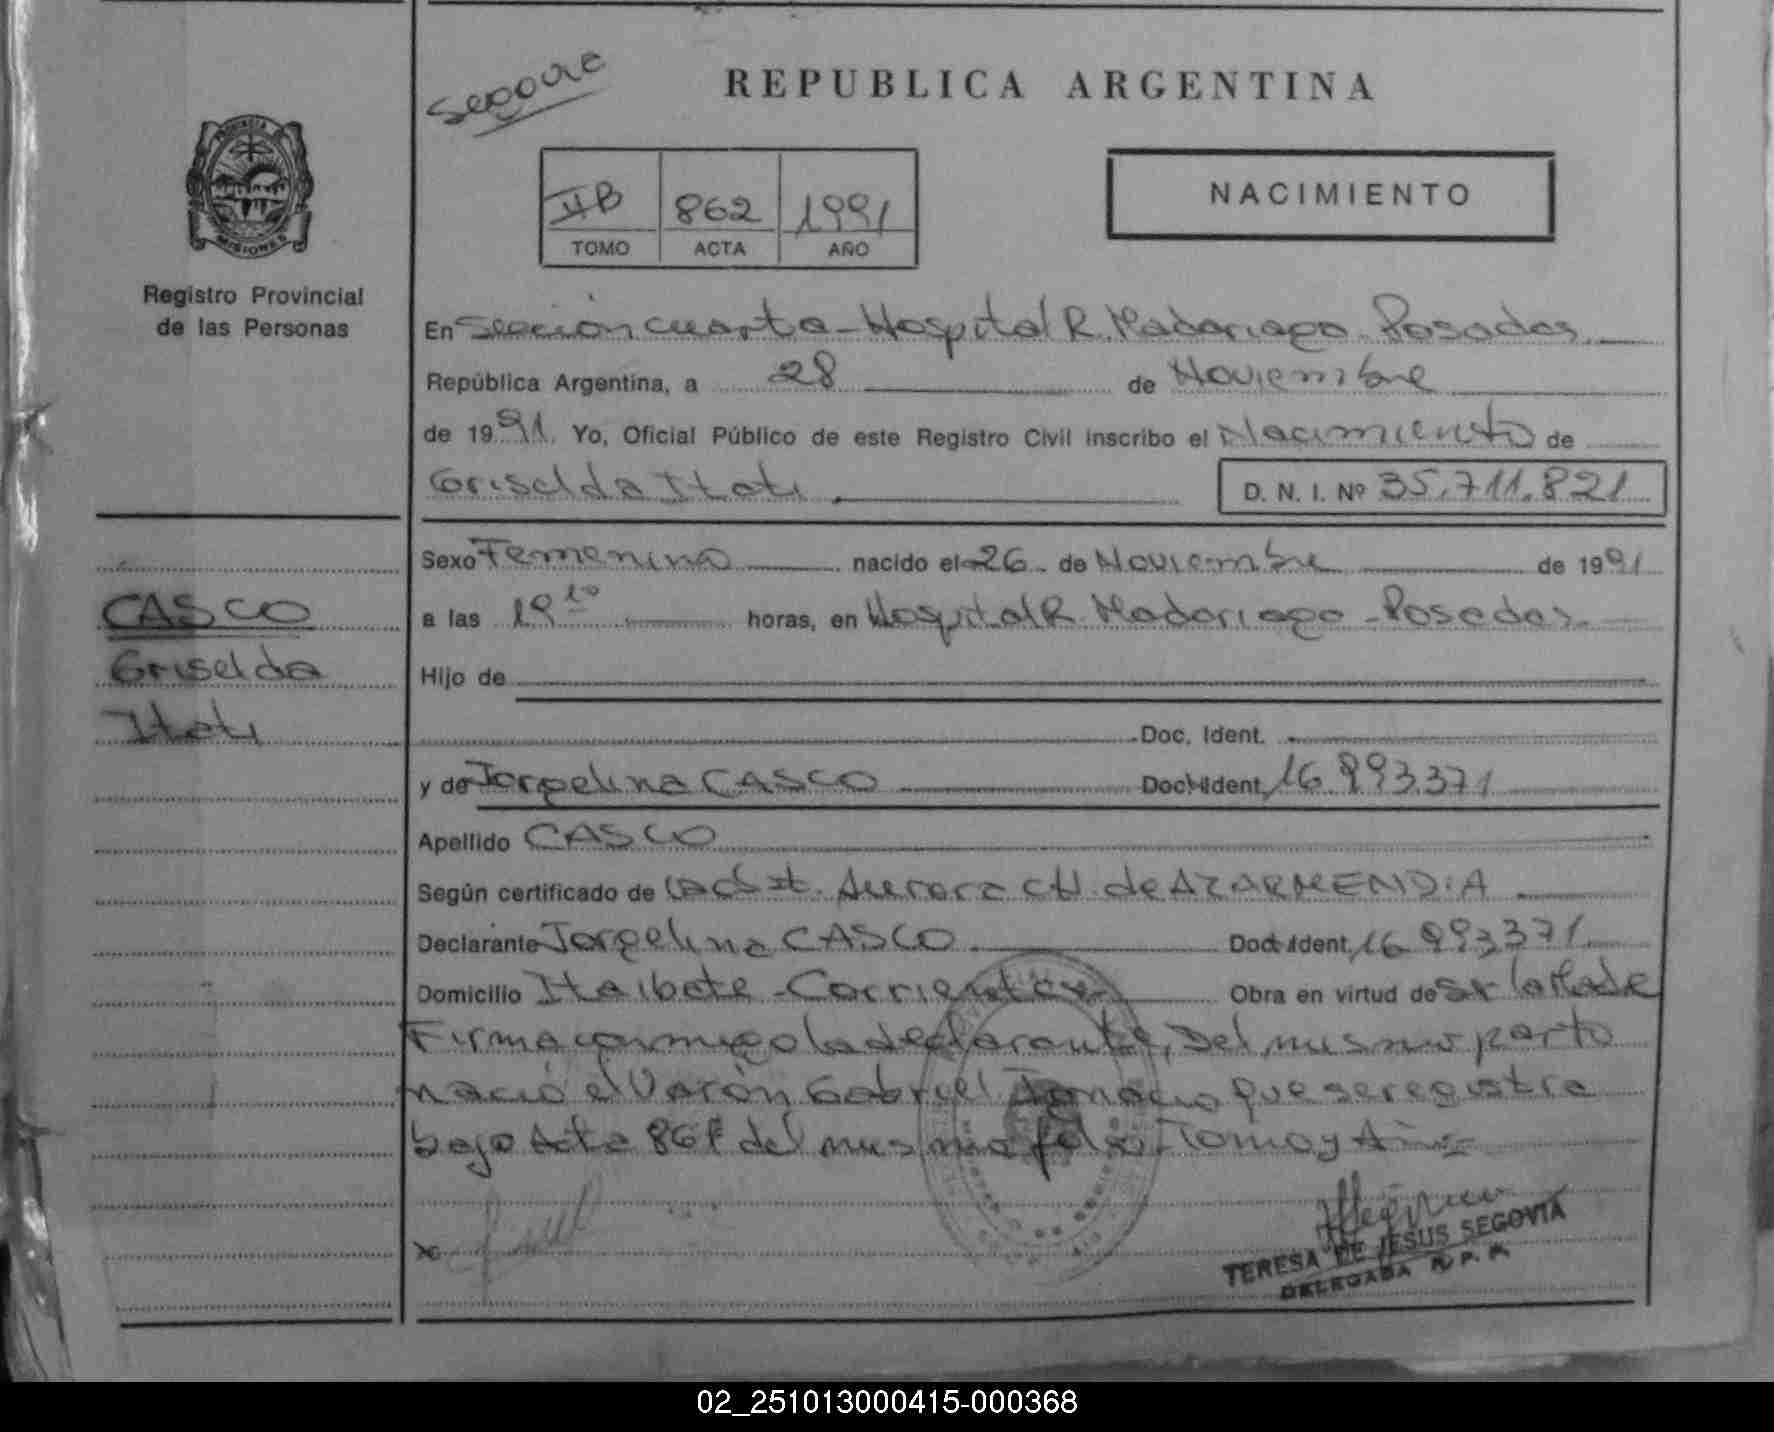 REPUBLICA ARGENTINA
PROVINCIA DE
MISIONES
Registro Provincial
de las Personas
IIB 862 1991
TOMO ACTA AÑO
NACIMIENTO
En Sección cuarta - Hospital R. Madariaga Posadas
República Argentina, a 28 de Noviembre
de 1991. Yo, Oficial Público de este Registro Civil inscribo el Nacimiento de
Griselda Itati
D. N. I. Nº 35.711.821
Sexo Femenino nacido el 26 de Noviembre de 1991
a las 19 10 horas, en Hospital R. Madariaga - Posadas
Hijo de
Doc. Ident.
y de Jorgelina CASCO Doc. Ident. 16.993.371
Apellido CASCO
Según certificado de Obst. Aurora CH. de AZARMENDIA
Declarante Jorgelina CASCO Doc. Ident. 16.993.371
Domicilio Itaibate - Corrientes Obra en virtud de ser la Madre
Firma conmigo la declarante, Del mismo parto
nació el Varón Gabriel Ignacio que se registra
bajo Acta 861 del mismo folio Tomo y Año
CASCO
Griselda
Itati
TERESA DE JESUS SEGOVIA
DELEGADA R. P. P.
02_251013000415-000368